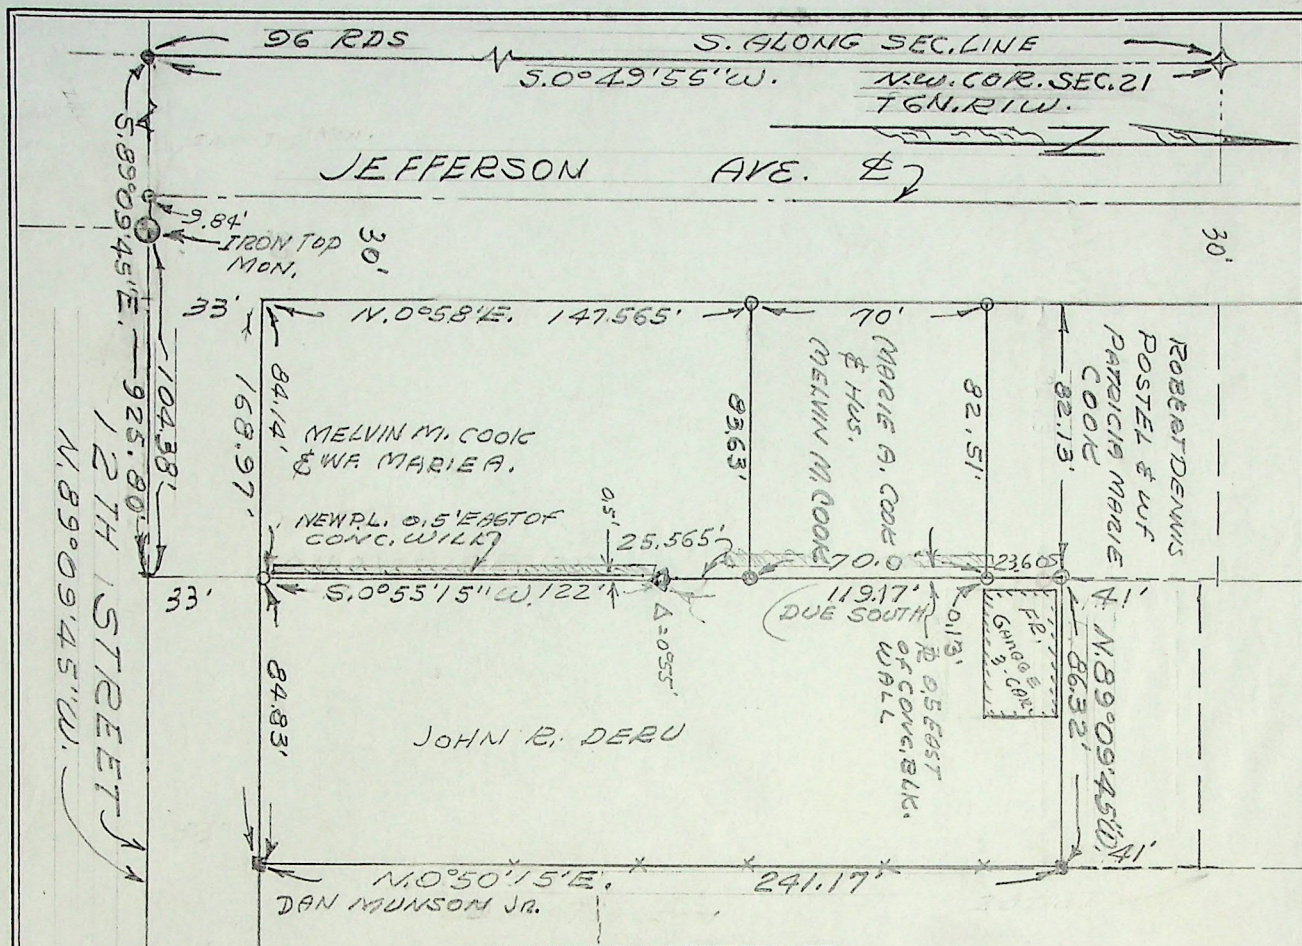 96 RDS
S. ALONG SEC. LINE
S.0°49'55"W.
N.W. COR. SEC. 21
T6N. R1W.
JEFFERSON AVE. ℄
S.89°09'45"E. — 925.80'
9.84'
IRON TOP
MON.
30'
30'
104.38'
33'
N.0°58'E. 147.565'
70'
168.97'
84.14'
MELVIN M. COOK
& WF. MARIE A.
83.63'
MARIE A. COOK
& HUS.
MELVIN M. COOK
82.51'
82.13'
ROBERT DENNIS
POSTEL & WF
PATRICIA MARIE
COOK
NEW P.L. 0.5' EAST OF
CONC. WALK
0.5'
25.565'
70.0
23.60
33'
S.0°55'15"W. 122'
119.17'
(DUE SOUTH
0.13'
41'
Δ=0°55'
℄ 0.5 EAST
OF CONC. BLK.
WALL
FR.
GARAGE
3 CAR
86.32'
N.89°09'45"W.
12TH STREET
N.89°09'45"W.
84.83'
JOHN R. DERU
41'
N.0°50'15"E.
241.17'
DAN MUNSON JR.